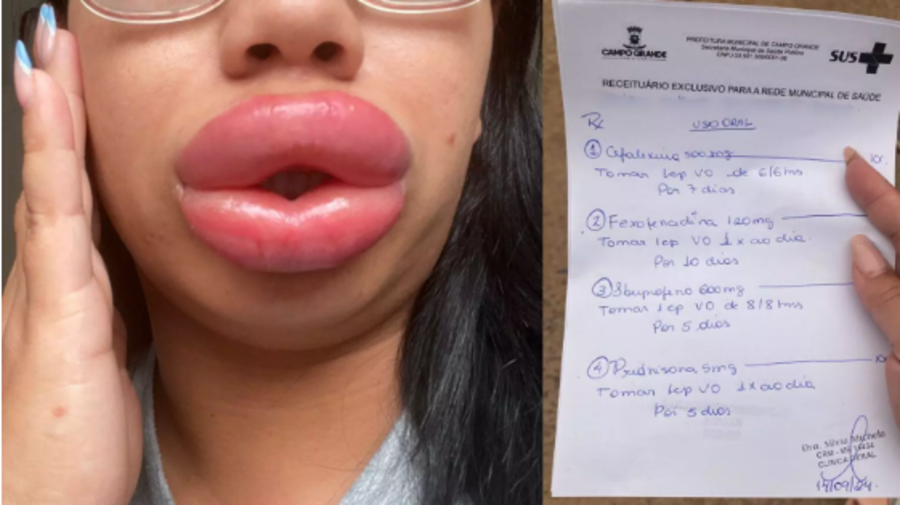 CAMPO GRANDE
PREFEITURA MUNICIPAL DE CAMPO GRANDE
Secretaria Municipal de Saúde Pública
SUS
RECEITUÁRIO EXCLUSIVO PARA A REDE MUNICIPAL DE SAÚDE
Rx USO ORAL
① Cefalexina 500mg
Tomar 1cp VO de 6/6hs
Por 7 dias
② Fexofenadina 120mg
Tomar 1cp VO 1x ao dia.
Por 10 dias
③ Ibuprofeno 600mg
Tomar 1cp VO de 8/8hs
Por 5 dias
④ Prednisona 5mg
Tomar 1cp VO 1x ao dia
Por 5 dias
Dra. Silvia
CRM-MS
CLINICA GERAL